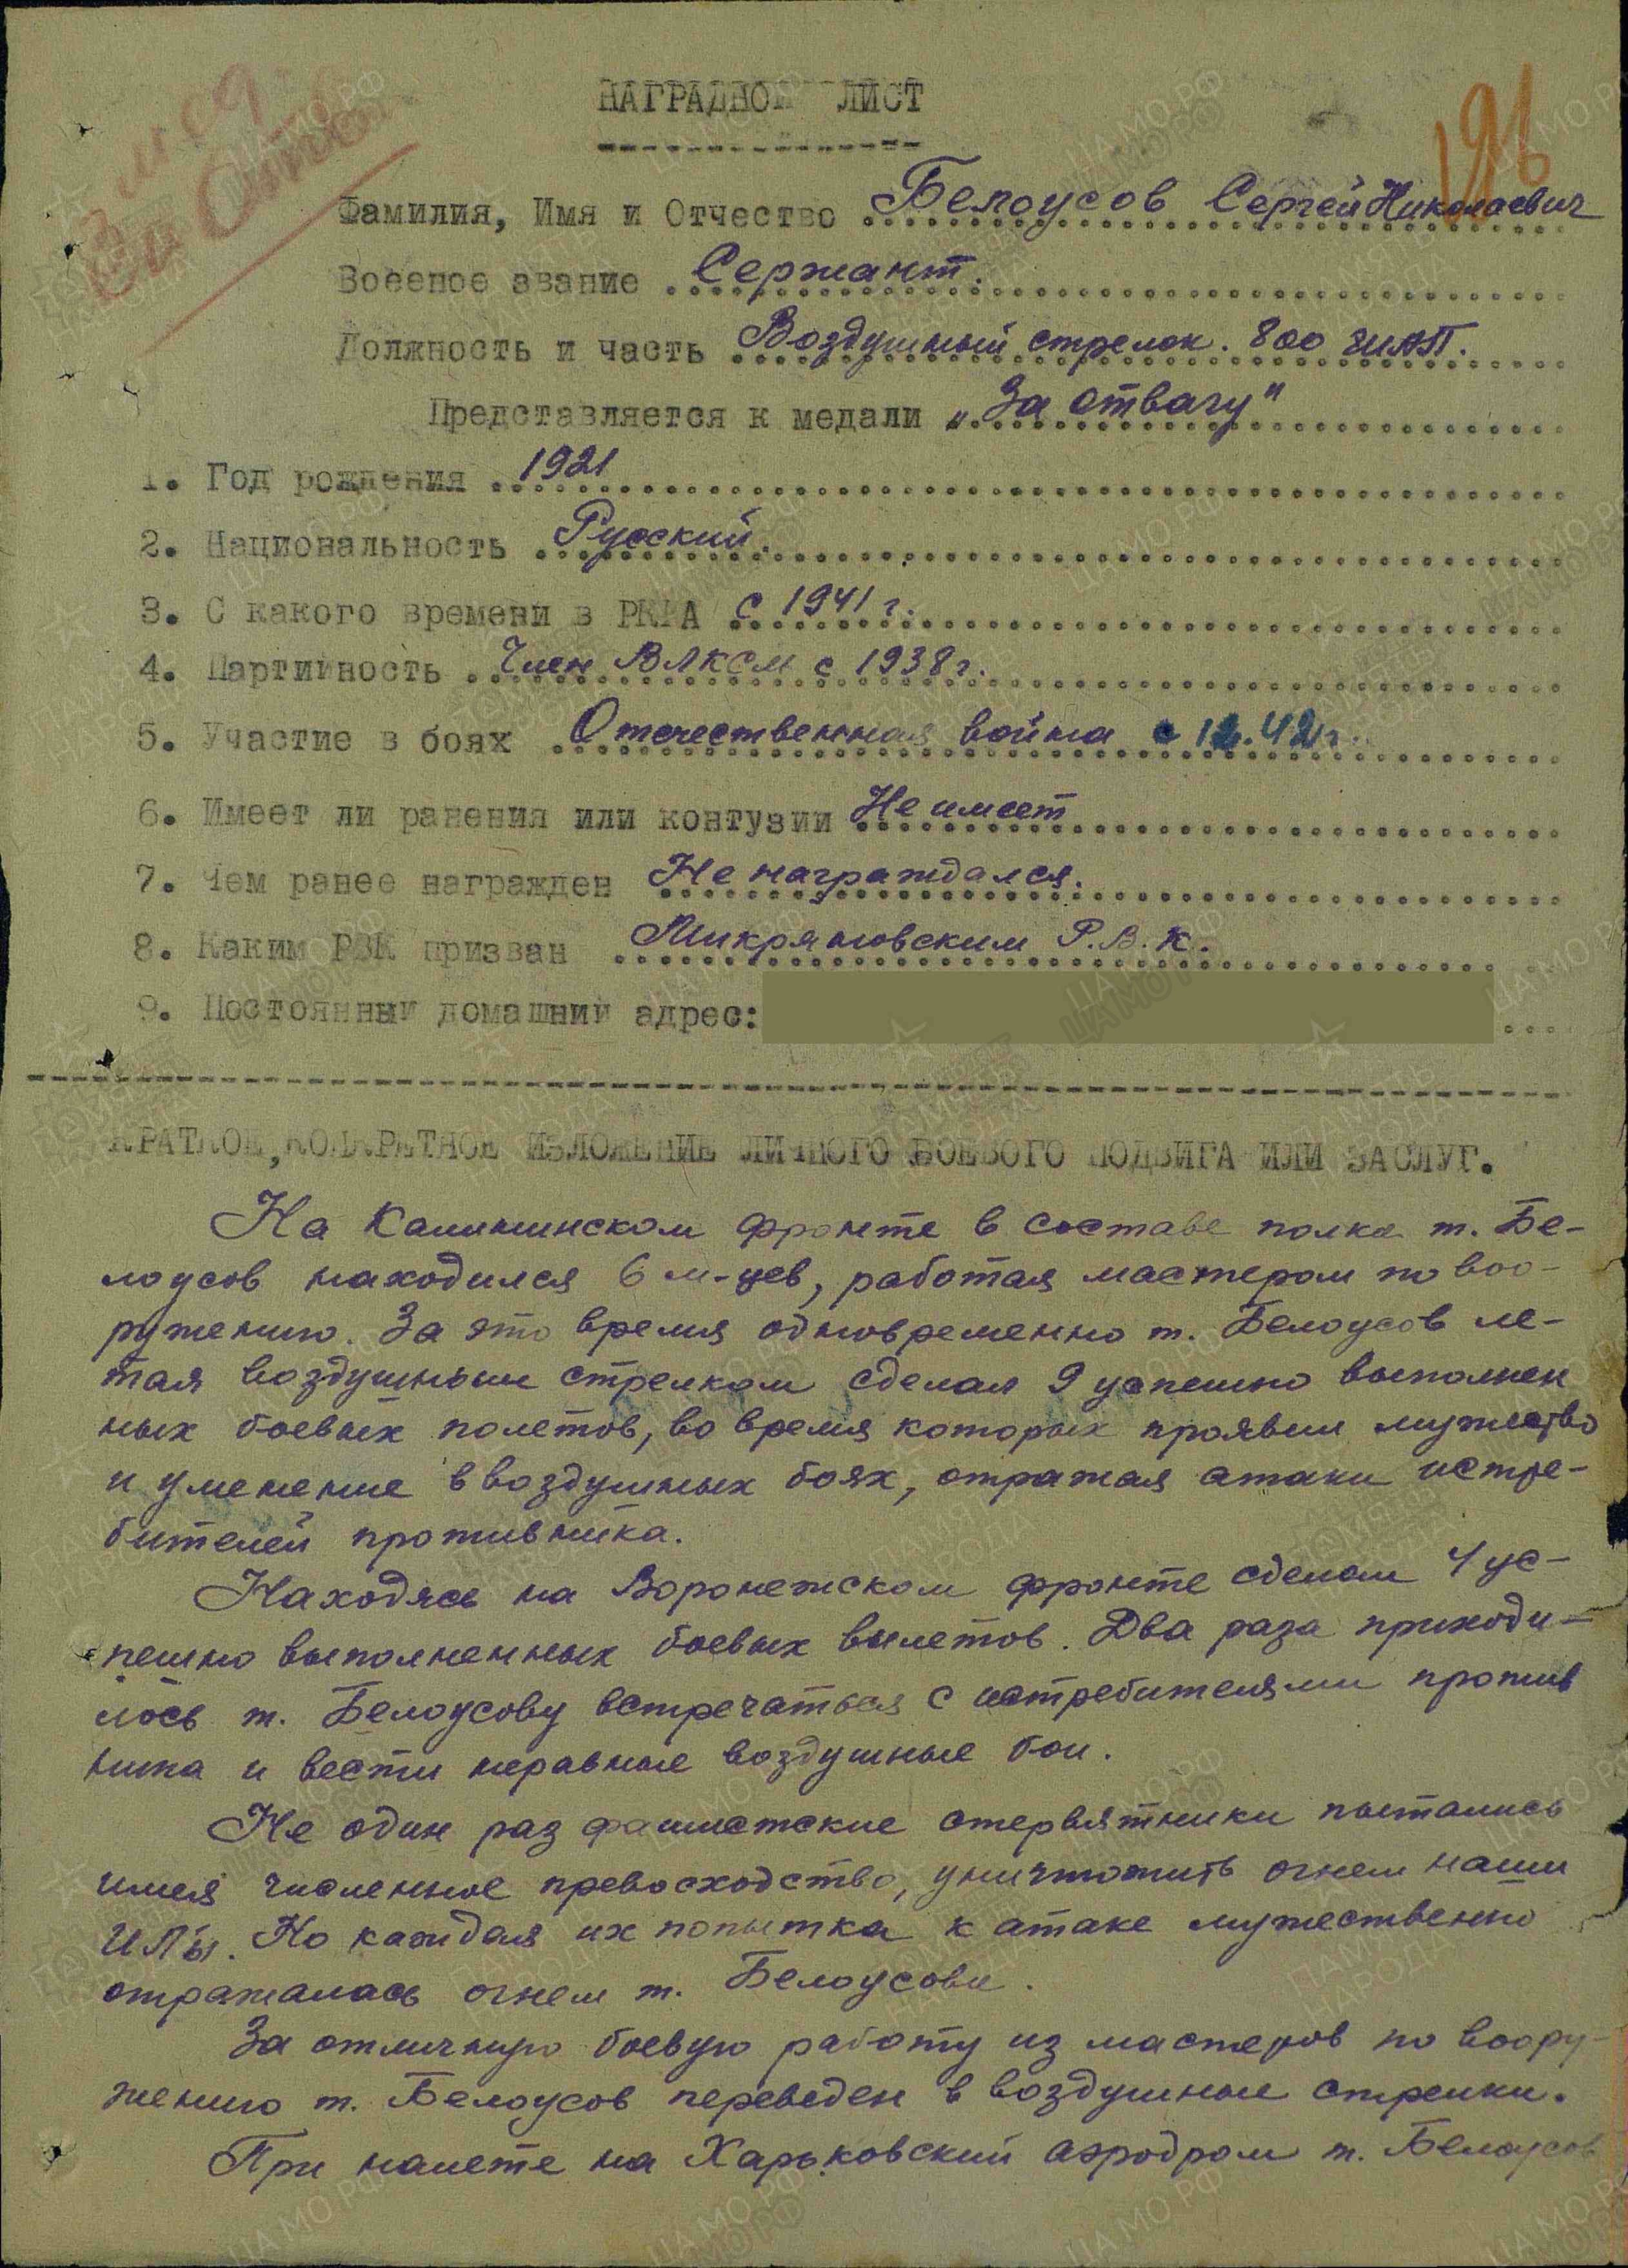 196
За Отвагу
НАГРАДНОЙ ЛИСТ
Фамилия, Имя и Отчество Белоусов Сергей Николаевич
Военное звание Сержант.
Должность и часть Воздушный стрелок. 800 ШАП.
Представляется к медали „За отвагу"
1. Год рождения 1921
2. Национальность Русский.
3. С какого времени в РККА с 1941 г.
4. Партийность Член ВЛКСМ с 1938 г.
5. Участие в боях Отечественная война с 12.42 г.
6. Имеет ли ранения или контузии Не имеет
7. Чем ранее награжден Не награждался.
8. Каким РВК призван Р.В.К.
9. Постоянный домашний адрес:
КРАТКОЕ, КОНКРЕТНОЕ ИЗЛОЖЕНИЕ ЛИЧНОГО БОЕВОГО ПОДВИГА ИЛИ ЗАСЛУГ.
На Калининском фронте в составе полка т. Бе-
лоусов находился 6 м-цев, работая мастером по воо-
ружению. За это время одновременно т. Белоусов ле-
тая воздушным стрелком сделал 9 успешно выполнен
ных боевых полетов, во время которых проявил мужество
и умение в воздушных боях, отражая атаки истре-
бителей противника.
Находясь на Воронежском фронте сделал 4 ус-
пешно выполненных боевых вылетов. Два раза приходи-
лось т. Белоусову встречаться с истребителями против
ника и вести неравные воздушные бои.
Не один раз фашистские стервятники пытались
имея численное превосходство, уничтожить огнем наши
ИЛы. Но каждая их попытка к атаке мужественно
отражалась огнем т. Белоусова.
За отличную боевую работу из мастеров по воору-
жению т. Белоусов переведен в воздушные стрелки.
При налете на Харьковский аэродром т. Белоусов